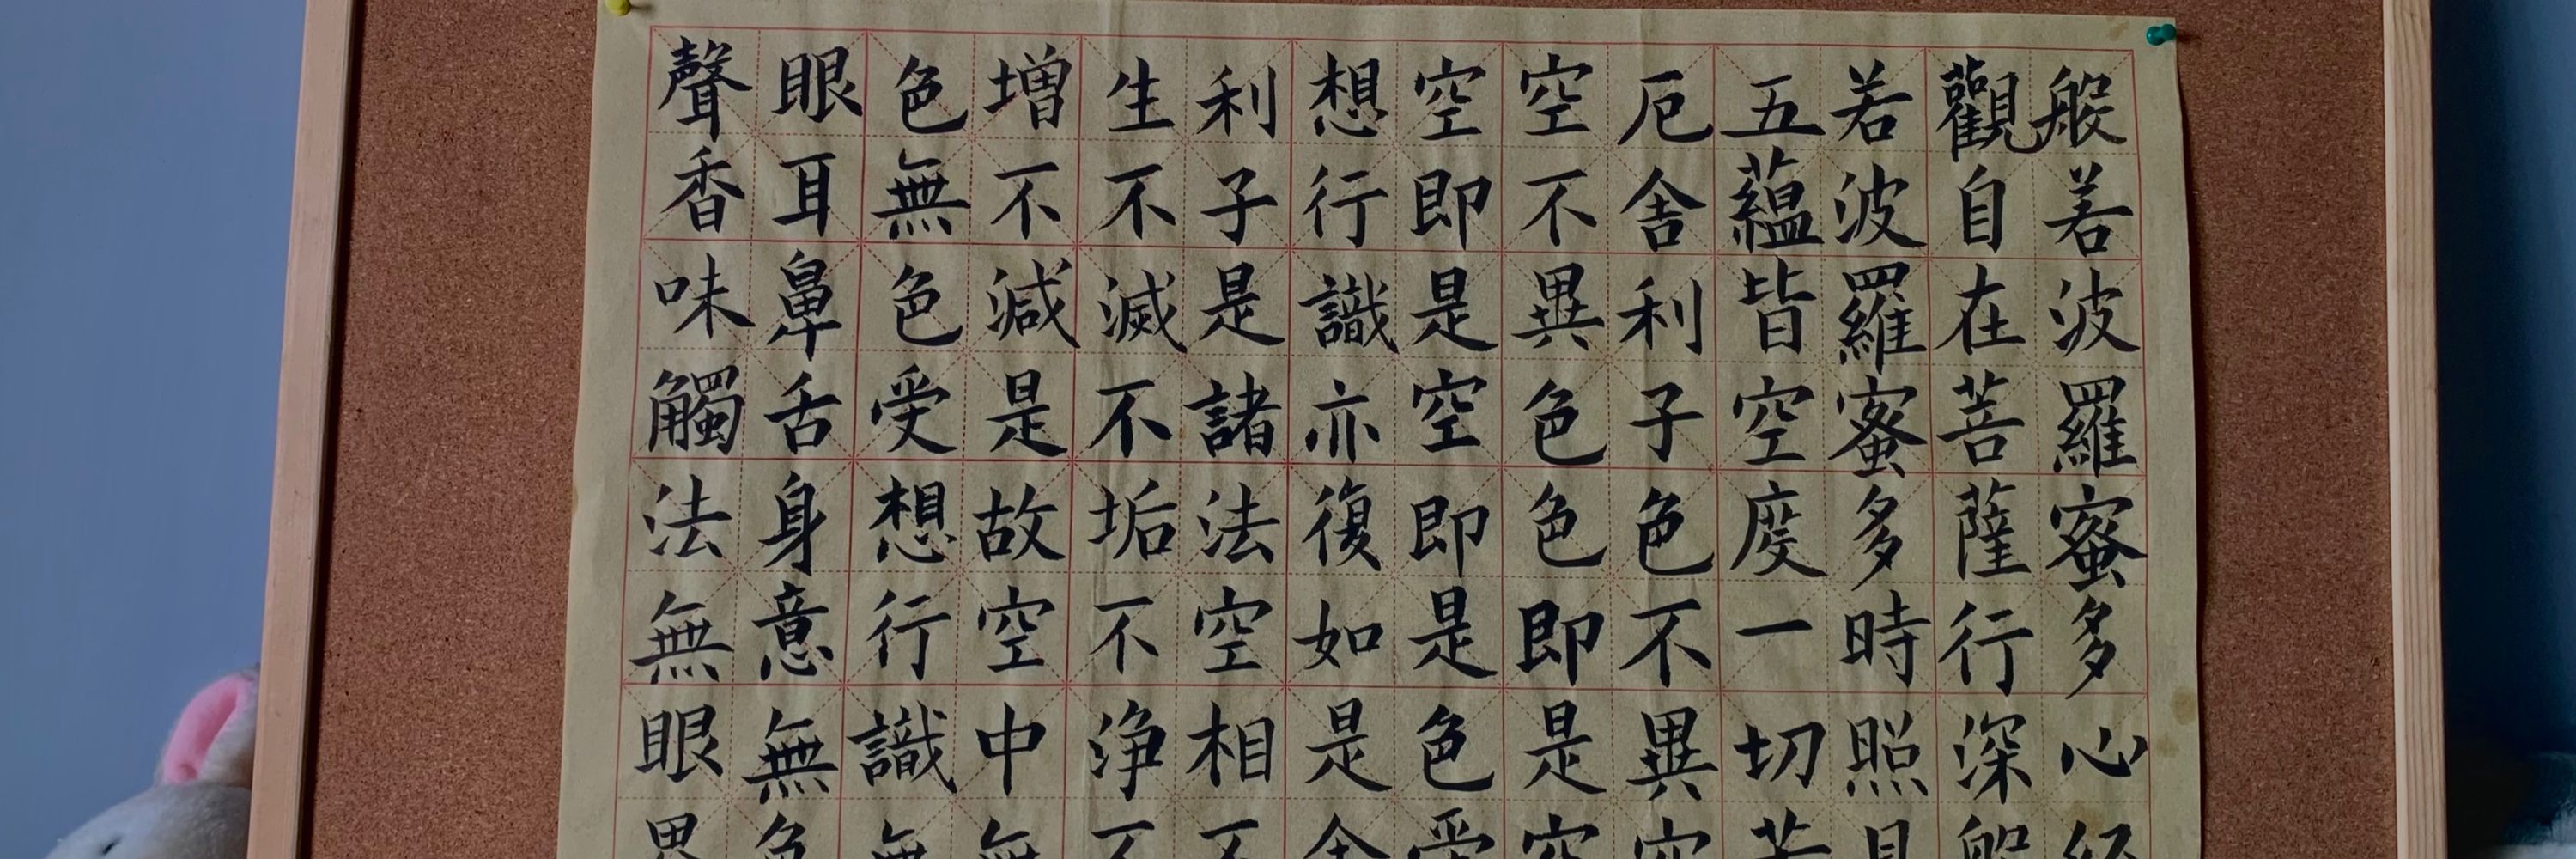 般若波羅蜜多心経
觀自在菩薩行深般
若波羅蜜多時照見
五蘊皆空度一切苦
厄舍利子色不異空
空不異色色即是空
空即是空即是色受
想行識亦復如是舍
利子是諸法空相不
生不滅不垢不淨不
增不減是故空中無
色無色受想行識無
眼耳鼻舌身意無色
聲香味觸法無眼界